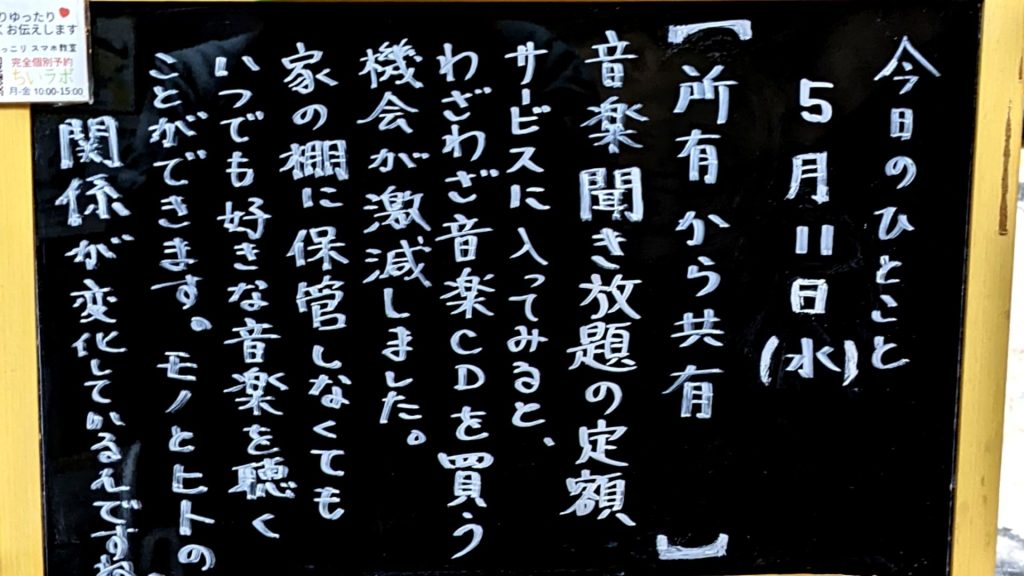 今日のひとこと
5月11日(水)
【所有から共有】
音楽聞き放題の定額、
サービスに入ってみると、
わざわざ音楽CDを買う
機会が激減しました。
家の棚に保管しなくても
いつでも好きな音楽を聴く
ことができます。モノとヒトの
関係が変化しているんですね
りゆったり
くお伝えします
っこりスマホ教室
完全個別予約
ちいラボ
月-金 10:00-15:00